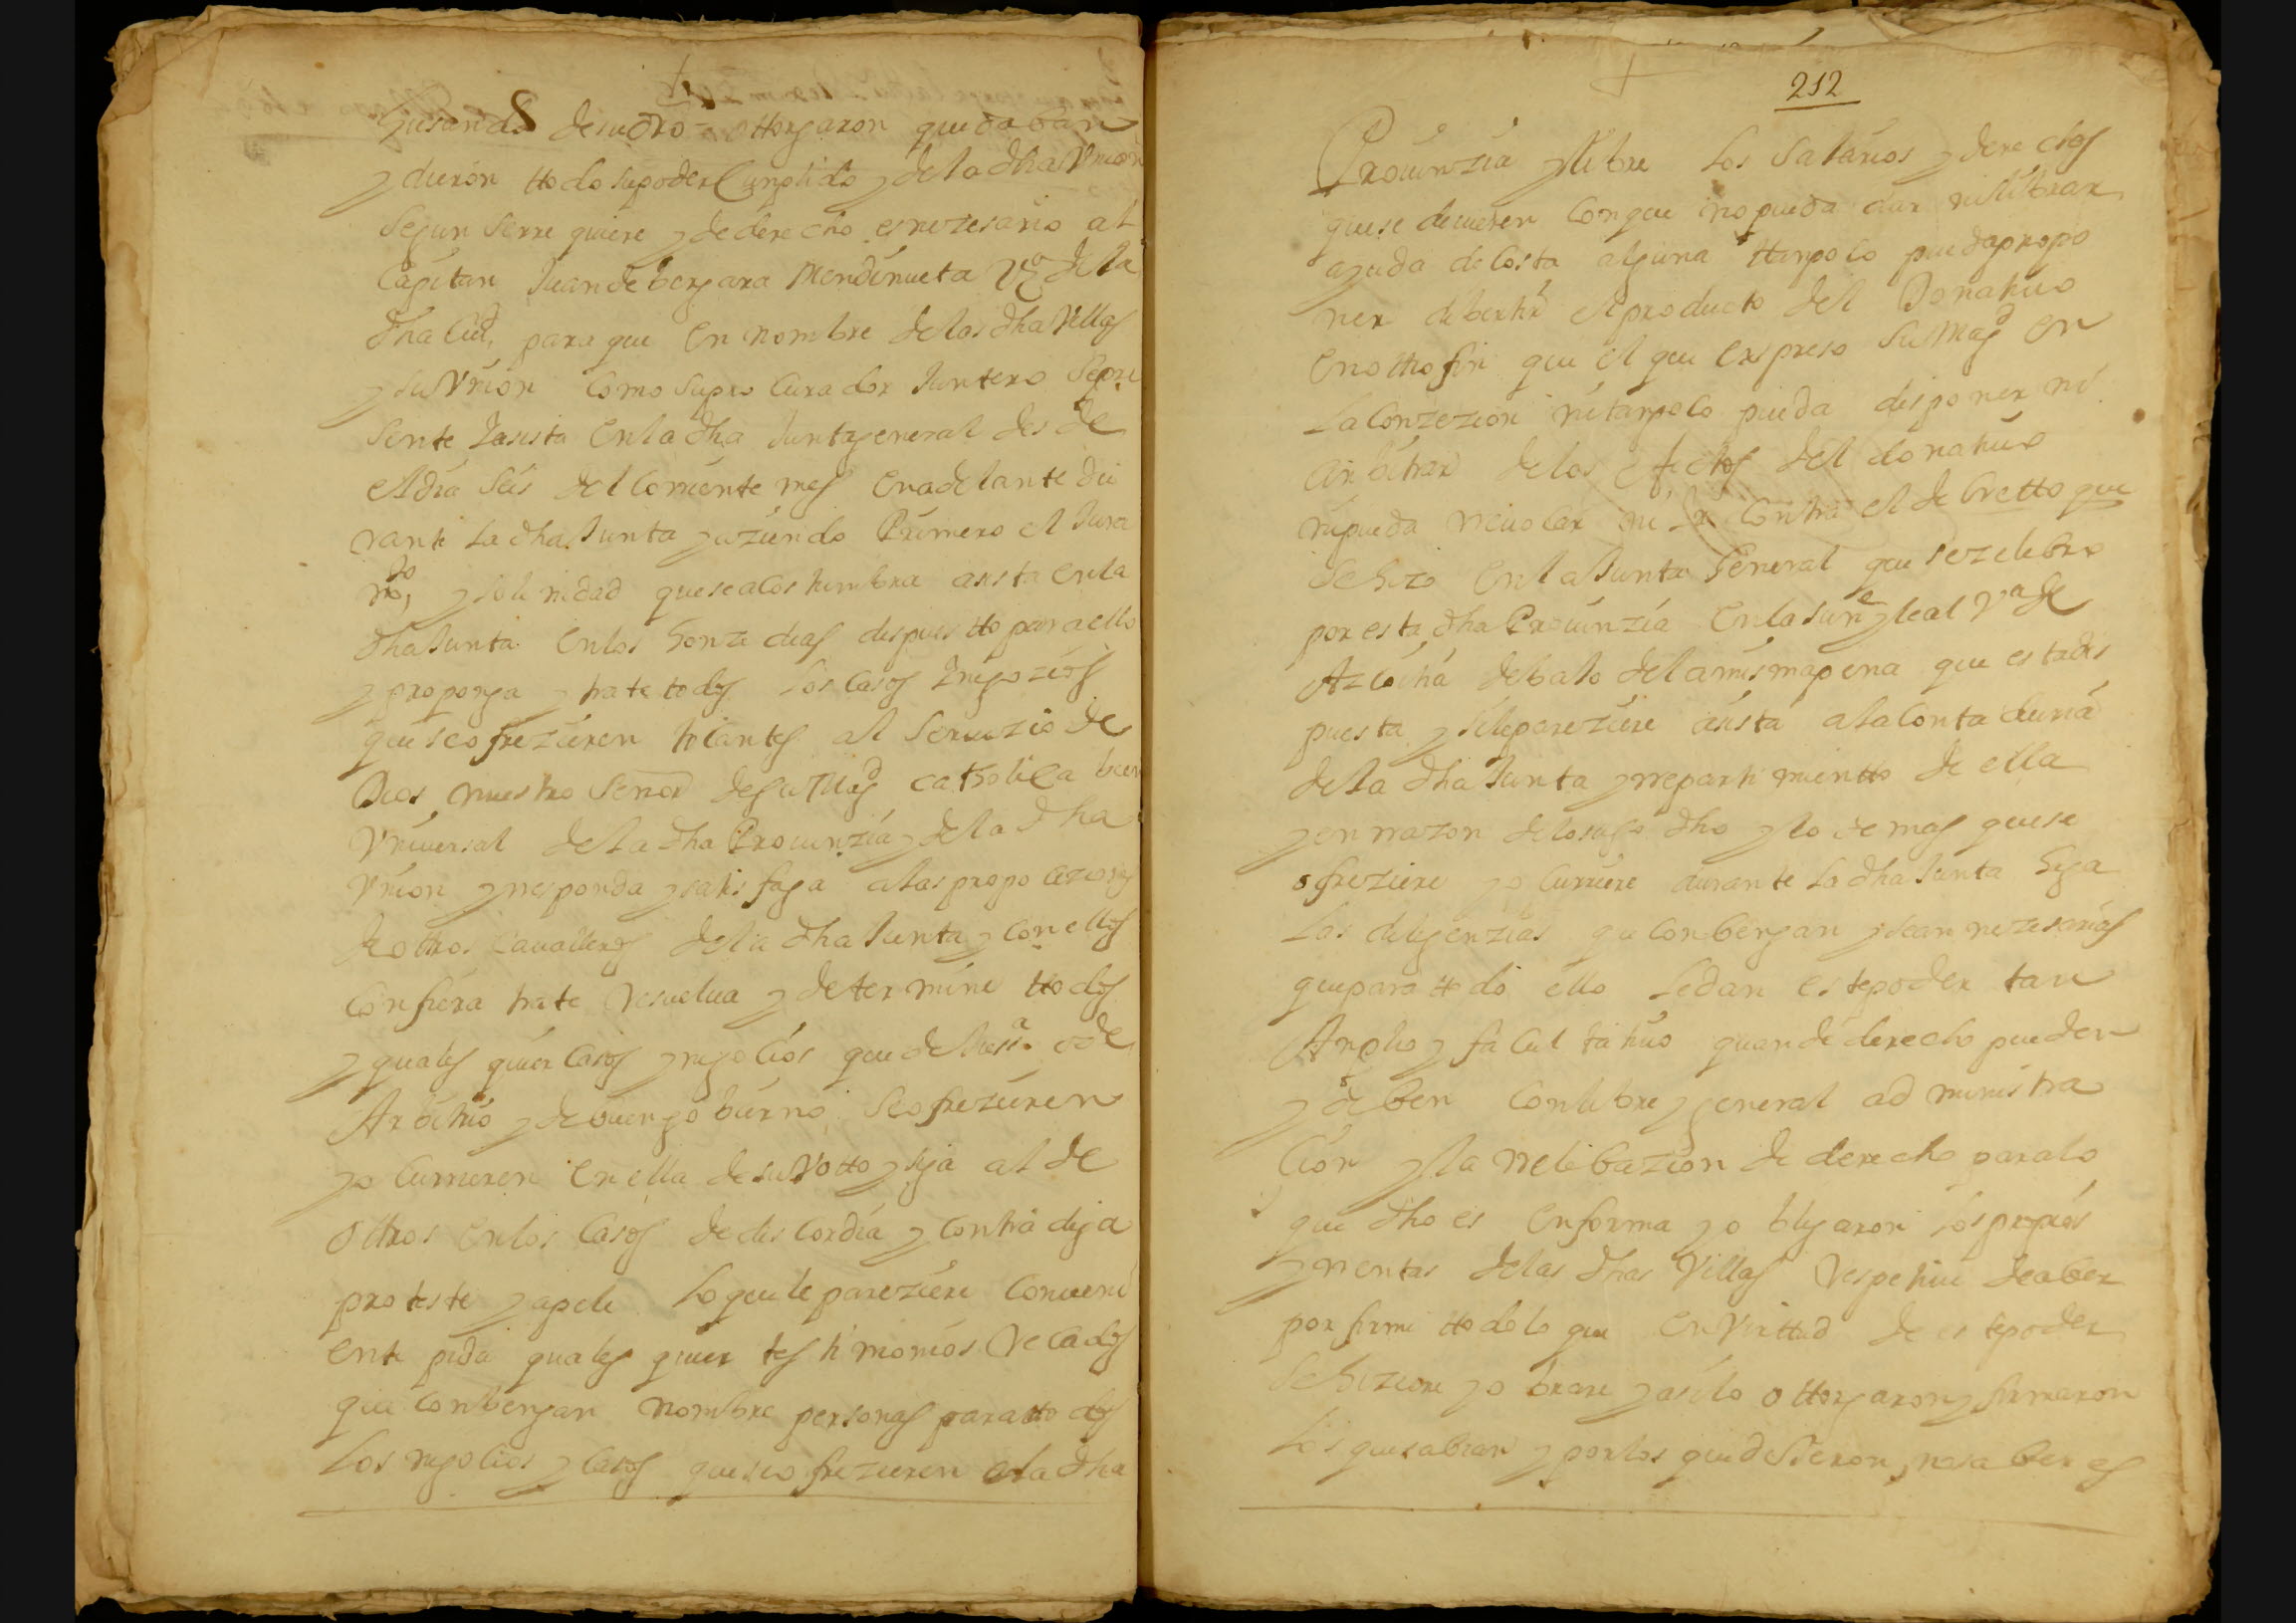 y usando de su dro = ottorgaron que daban
y dieron ttodo su poder Cunplido y de la dha Vnion
Segun Se rre quiere y de derecho es nezesario al
Capitan Juan de bergara Mendinueta Vzº de la
dha Ciud, para que En nombre de las dha Villas
y su Vnion Como su pro Curador Juntero Se pre
Sente Y asista En la dha Junta general desde
el dia Seis del Corriente mes En adelante du
rante La dha Junta y aziendo Primero el Jura
mto, y sole nidad que se a Costumbra asista en la
dha Junta En los honze dias dispuestto para ello
y proponga y trate todos Los Casos Y negozios
que se o frezieren tocantes al Seruizio de
Dios nuestro Señor de su Magd catholica bien
Vniuersal de la dha Prouinzia y de la dha
Vnion y rresponda y satis faga a las propo ciziones
de ottros Caualleros de la dha Junta y con ellos
Confiera trate Resuelua y determine ttodos
y quales quier Casos y negocios que de Justª o de
Arbitrio y de buen go bierno Se ofrezieren
y o Currieren En ella de su Votto y siga al de
Ottros En los Casos de dis Cordia y Contra diga
proteste y apele Lo que le pareziere Conueni
ente pida quales quier tes timonios Recados
que Conbengan nombre personas para tto dos
Los negocios y Casos que se o frezieren a la dha
212
Prouinzia y libre Los Salarios y derechos
que se deuieren Con que no pueda dar ni librar
ayuda de Costa alguna ttanpoco pueda propo
ner dibertir el producto del Donatiuo
En otto fin que el que Expreso Su Magd en
La Conzezion ni tanpoco pueda disponer ni
Arbitrar de los efectos del donatiuo
ni pueda reuocar ni yr Contra el de Cretto que
Se hizo En la Junta General que se zelebro
por esta dha Prouinzia En la Sune y leal Vª de
Azcoitia debaxo de la misma pena que esta dis
puesta y si le pareziere asista a la Conta duria
de la dha Junta y rreparti mientto de ella
y en rrazon de lo suso dho y lo de mas que se
ofreziere y o Curriere durante La dha Junta haga
Las diligenzias que Conbengan y sean nezesarias
que para ttodo ello Le dan este poder tan
Anplio y facul tatiuo quan de derecho pueden
y deben Con libre y general ad ministra
Cion y la rrelebazion de derecho para lo
que dho es En forma y o bligaron Los propios
y rrentas de las dhas Villas Respetiue de aber
por firme ttodo lo que En Virttud de este poder
Se hiziere y o brare y asi lo ottorgaron y firmaron
Los que sabian y por los que dixeron, no saber es